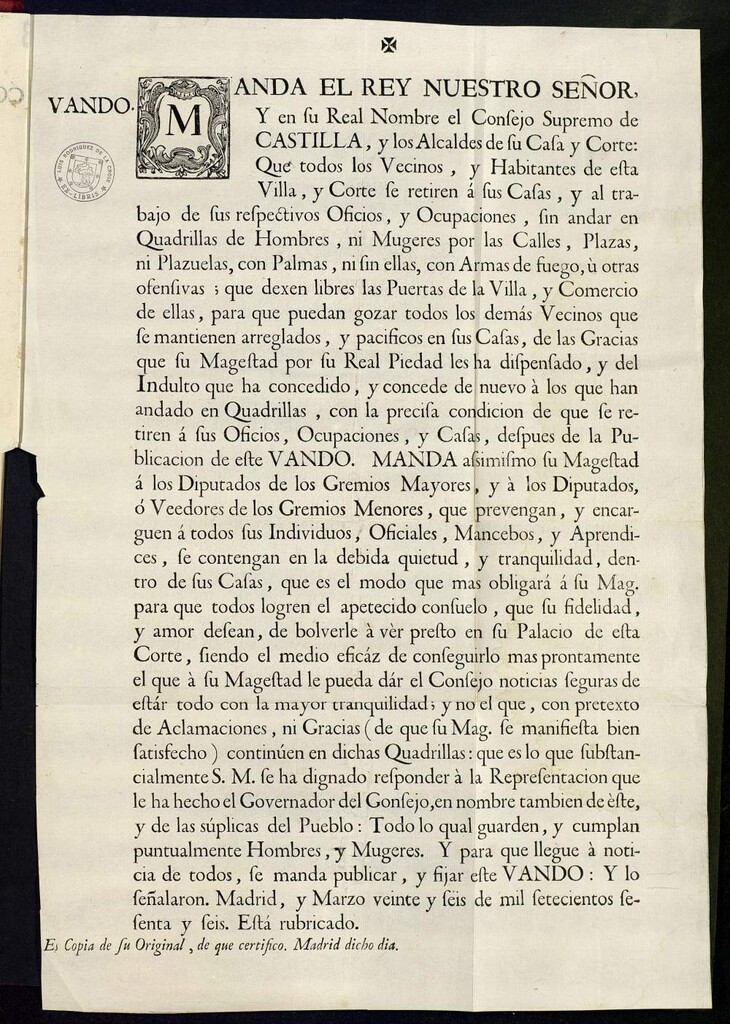 ✠
VANDO. MANDA EL REY NUESTRO SEÑOR,
Y en ſu Real Nombre el Conſejo Supremo de
CASTILLA, y los Alcaldes de ſu Caſa y Corte:
Que todos los Vecinos, y Habitantes de eſta
Villa, y Corte ſe retiren á ſus Caſas, y al tra-
bajo de ſus reſpectivos Oficios, y Ocupaciones, ſin andar en
Quadrillas de Hombres, ni Mugeres por las Calles, Plazas,
ni Plazuelas, con Palmas, ni ſin ellas, con Armas de fuego, ù otras
ofenſivas; que dexen libres las Puertas de la Villa, y Comercio
de ellas, para que puedan gozar todos los demás Vecinos que
ſe mantienen arreglados, y pacificos en ſus Caſas, de las Gracias
que ſu Mageſtad por ſu Real Piedad les ha diſpenſado, y del
Indulto que ha concedido, y concede de nuevo à los que han
andado en Quadrillas, con la preciſa condicion de que ſe re-
tiren á ſus Oficios, Ocupaciones, y Caſas, deſpues de la Pu-
blicacion de eſte VANDO. MANDA aſsimiſmo ſu Mageſtad
á los Diputados de los Gremios Mayores, y à los Diputados,
ó Veedores de los Gremios Menores, que prevengan, y encar-
guen á todos ſus Individuos, Oficiales, Mancebos, y Aprendi-
ces, ſe contengan en la debida quietud, y tranquilidad, den-
tro de ſus Caſas, que es el modo que mas obligará á ſu Mag.
para que todos logren el apetecido conſuelo, que ſu fidelidad,
y amor deſean, de bolverle à vèr preſto en ſu Palacio de eſta
Corte, ſiendo el medio eficáz de conſeguirlo mas prontamente
el que à ſu Mageſtad le pueda dár el Conſejo noticias ſeguras de
eſtár todo con la mayor tranquilidad; y no el que, con pretexto
de Aclamaciones, ni Gracias (de que ſu Mag. ſe manifieſta bien
ſatisfecho) continúen en dichas Quadrillas: que es lo que ſubſtan-
cialmente S. M. ſe ha dignado reſponder à la Repreſentacion que
le ha hecho el Governador del Gonſejo, en nombre tambien de èſte,
y de las súplicas del Pueblo: Todo lo qual guarden, y cumplan
puntualmente Hombres, y Mugeres. Y para que llegue à noti-
cia de todos, ſe manda publicar, y fijar eſte VANDO: Y lo
ſeñalaron. Madrid, y Marzo veinte y ſeis de mil ſetecientos ſe-
ſenta y ſeis. Eſtá rubricado.
Es Copia de ſu Original, de que certifico. Madrid dicho dia.
LUIS RODRIGUEZ DE LA CROIX
EX-LIBRIS